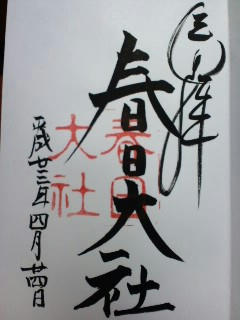 奉拝
春日大社
春日
大社
平成廿三年四月廿四日